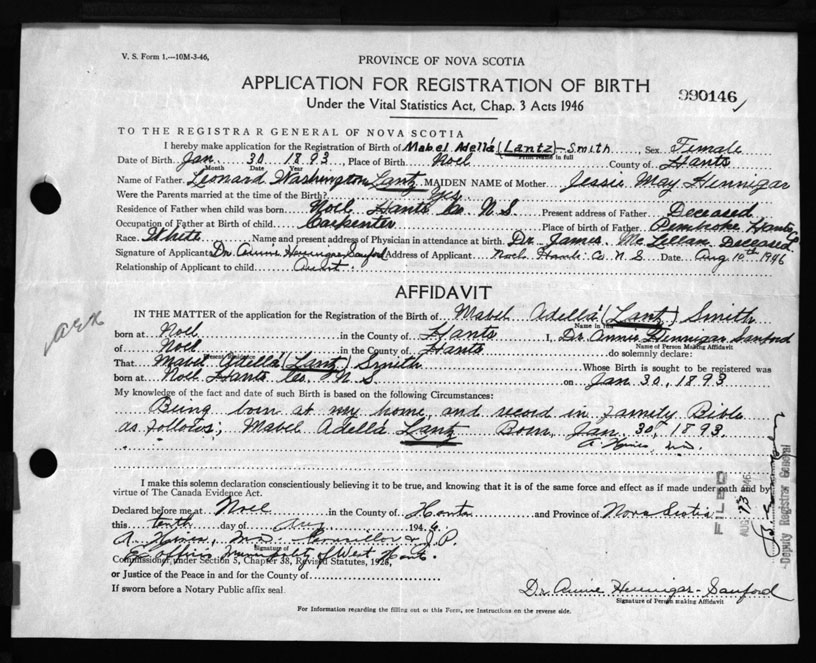 V. S. Form 1.—10M-3-46,
PROVINCE OF NOVA SCOTIA
APPLICATION FOR REGISTRATION OF BIRTH
990146
Under the Vital Statistics Act, Chap. 3 Acts 1946
TO THE REGISTRAR GENERAL OF NOVA SCOTIA
I hereby make application for the Registration of Birth of Mabel Adella (Lantz) - Smith, Sex Female
Print Name in full
Date of Birth Jan. 30 1893, Place of Birth Noel County of Hants
Month Date Year
Name of Father Leonard Washington Lantz MAIDEN NAME of Mother Jessie May Hennigar
Were the Parents married at the time of the Birth? Yes
Residence of Father when child was born Noel Hants Co. N.S. Present address of Father Deceased
Occupation of Father at Birth of child Carpenter Place of birth of Father Pembroke Hants
Race White Name and present address of Physician in attendance at birth Dr. James McLellan Deceased
Signature of Applicant Dr Annie Hennigar Sanford Address of Applicant Noel Hants Co N S Date Aug 10th 1946
Relationship of Applicant to child Aunt
AFFIDAVIT
IN THE MATTER of the application for the Registration of the Birth of Mabel Adella (Lantz) Smith
Name in full
born at Noel in the County of Hants I, Dr. Annie Hennigar Sanford
Name of Person Making Affidavit
of Noel in the County of Hants do solemnly declare:
Present Residence
That Mabel Adella (Lantz) Smith Whose Birth is sought to be registered was
born at Noel Hants Co. N S on Jan 30, 1893
My knowledge of the fact and date of such Birth is based on the following Circumstances:
Being born at my home, and record in family Bible
as follows; Mabel Adella Lantz Born, Jan. 30, 1893.
I make this solemn declaration conscientiously believing it to be true, and knowing that it is of the same force and effect as if made under oath and by
virtue of The Canada Evidence Act.
Declared before me at Noel in the County of Hants and Province of Nova Scotia
this tenth day of Aug 1946.
Councillor & J.P.
Signature of
Ex officio Municipality of West Hants.
Commissioner under Section 5, Chapter 38, Revised Statutes, 1923,
or Justice of the Peace in and for the County of
If sworn before a Notary Public affix seal
Dr Annie Hennigar-Sanford
Signature of Person making Affidavit
For Information regarding the filling out of this Form, see Instructions on the reverse side.
FILED
AUG 13 '46
Deputy Registrar General